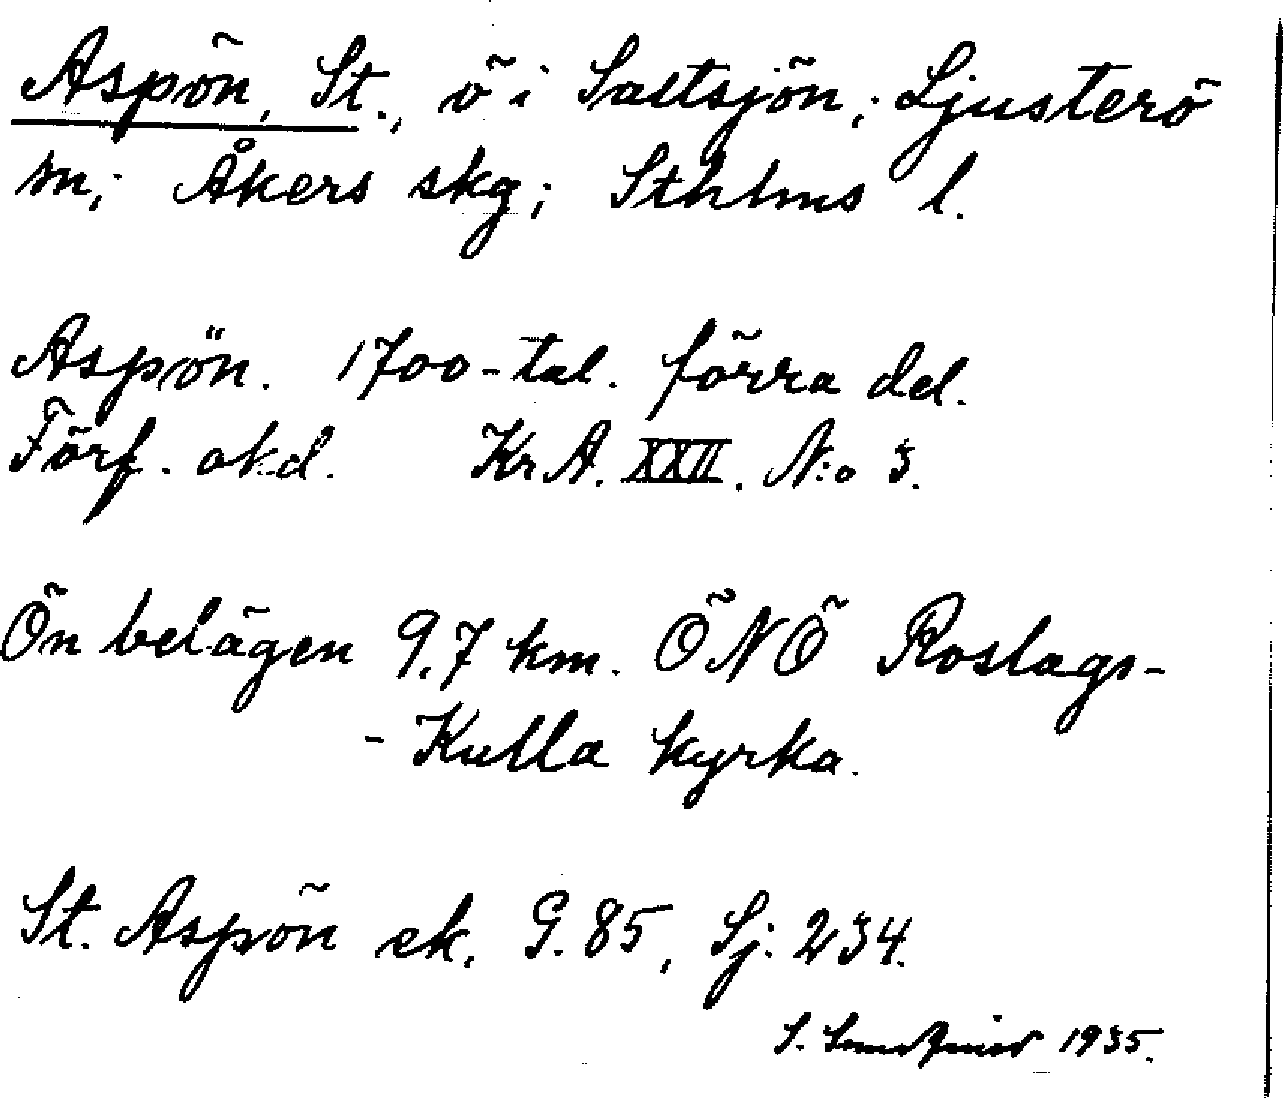 Aspön, St., ö i Saltsjön; Ljusterö
sn; Åkers skg; Sthlms l.
Aspön. 1700-tal. förra del.
Förf. okd. Kr A. XXII. N:o 3.
Ön belägen 9.7 km. ÖNÖ Roslags-
- Kulla kyrka.
St. Aspön ek. G. 85, Sj: 234.
S. 1935.